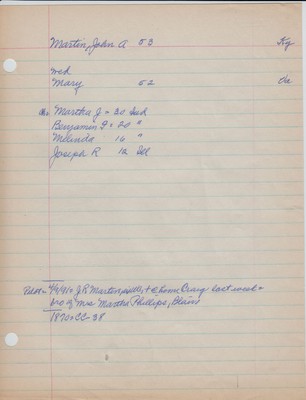 Martin, John A 53 Ky
wed
Mary 52
Ch. Martha J = 30 Ind
Benjamin F = 20 "
Melinda 16 "
Joseph R 12 Ill
4/4/1 J. R. Martin, & Craig last week =
bro of Mrs Martha Phillips, Blain
1870 = CC-38